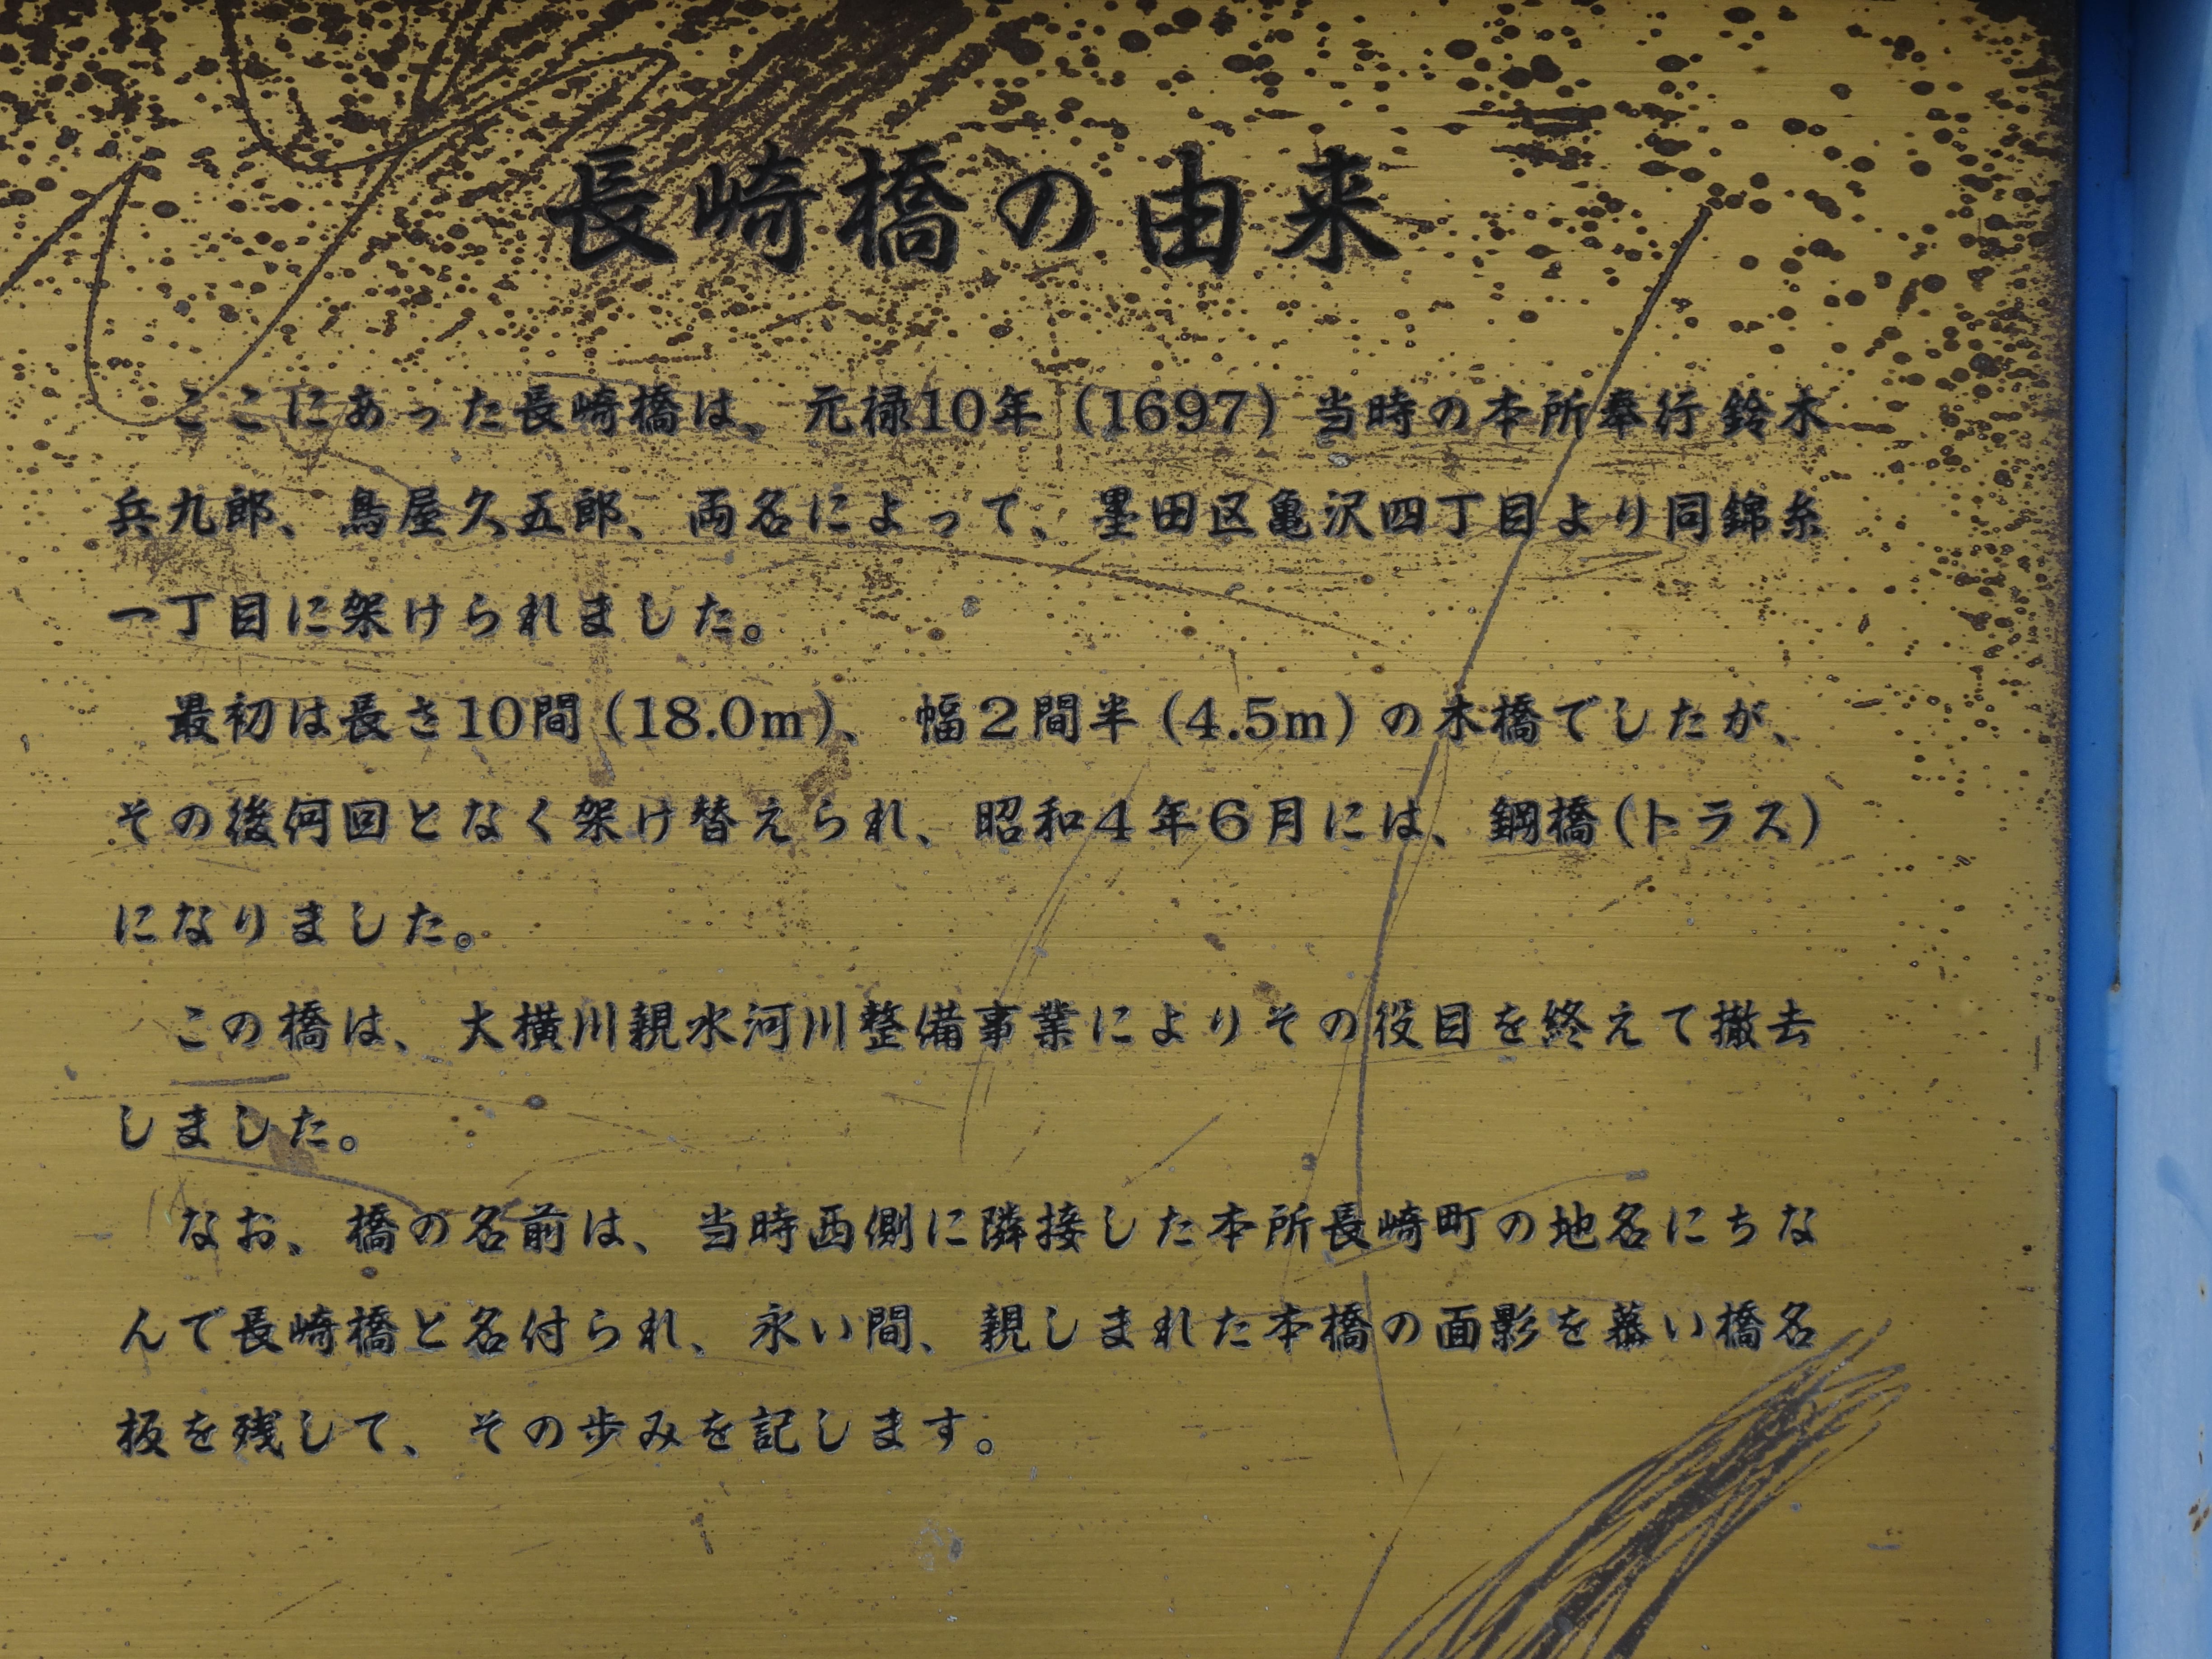 長崎橋の由来
ここにあった長崎橋は、元禄10年（1697）当時の本所奉行鈴木
兵九郎、鳥屋久五郎、両名によって、墨田区亀沢四丁目より同錦糸
一丁目に架けられました。
最初は長さ10間（18.0m）、幅２間半（4.5m）の木橋でしたが、
その後何回となく架け替えられ、昭和４年６月には、鋼橋（トラス）
になりました。
この橋は、大横川親水河川整備事業によりその役目を終えて撤去
しました。
なお、橋の名前は、当時西側に隣接した本所長崎町の地名にちな
んで長崎橋と名付られ、永い間、親しまれた本橋の面影を慕い橋名
板を残して、その歩みを記します。